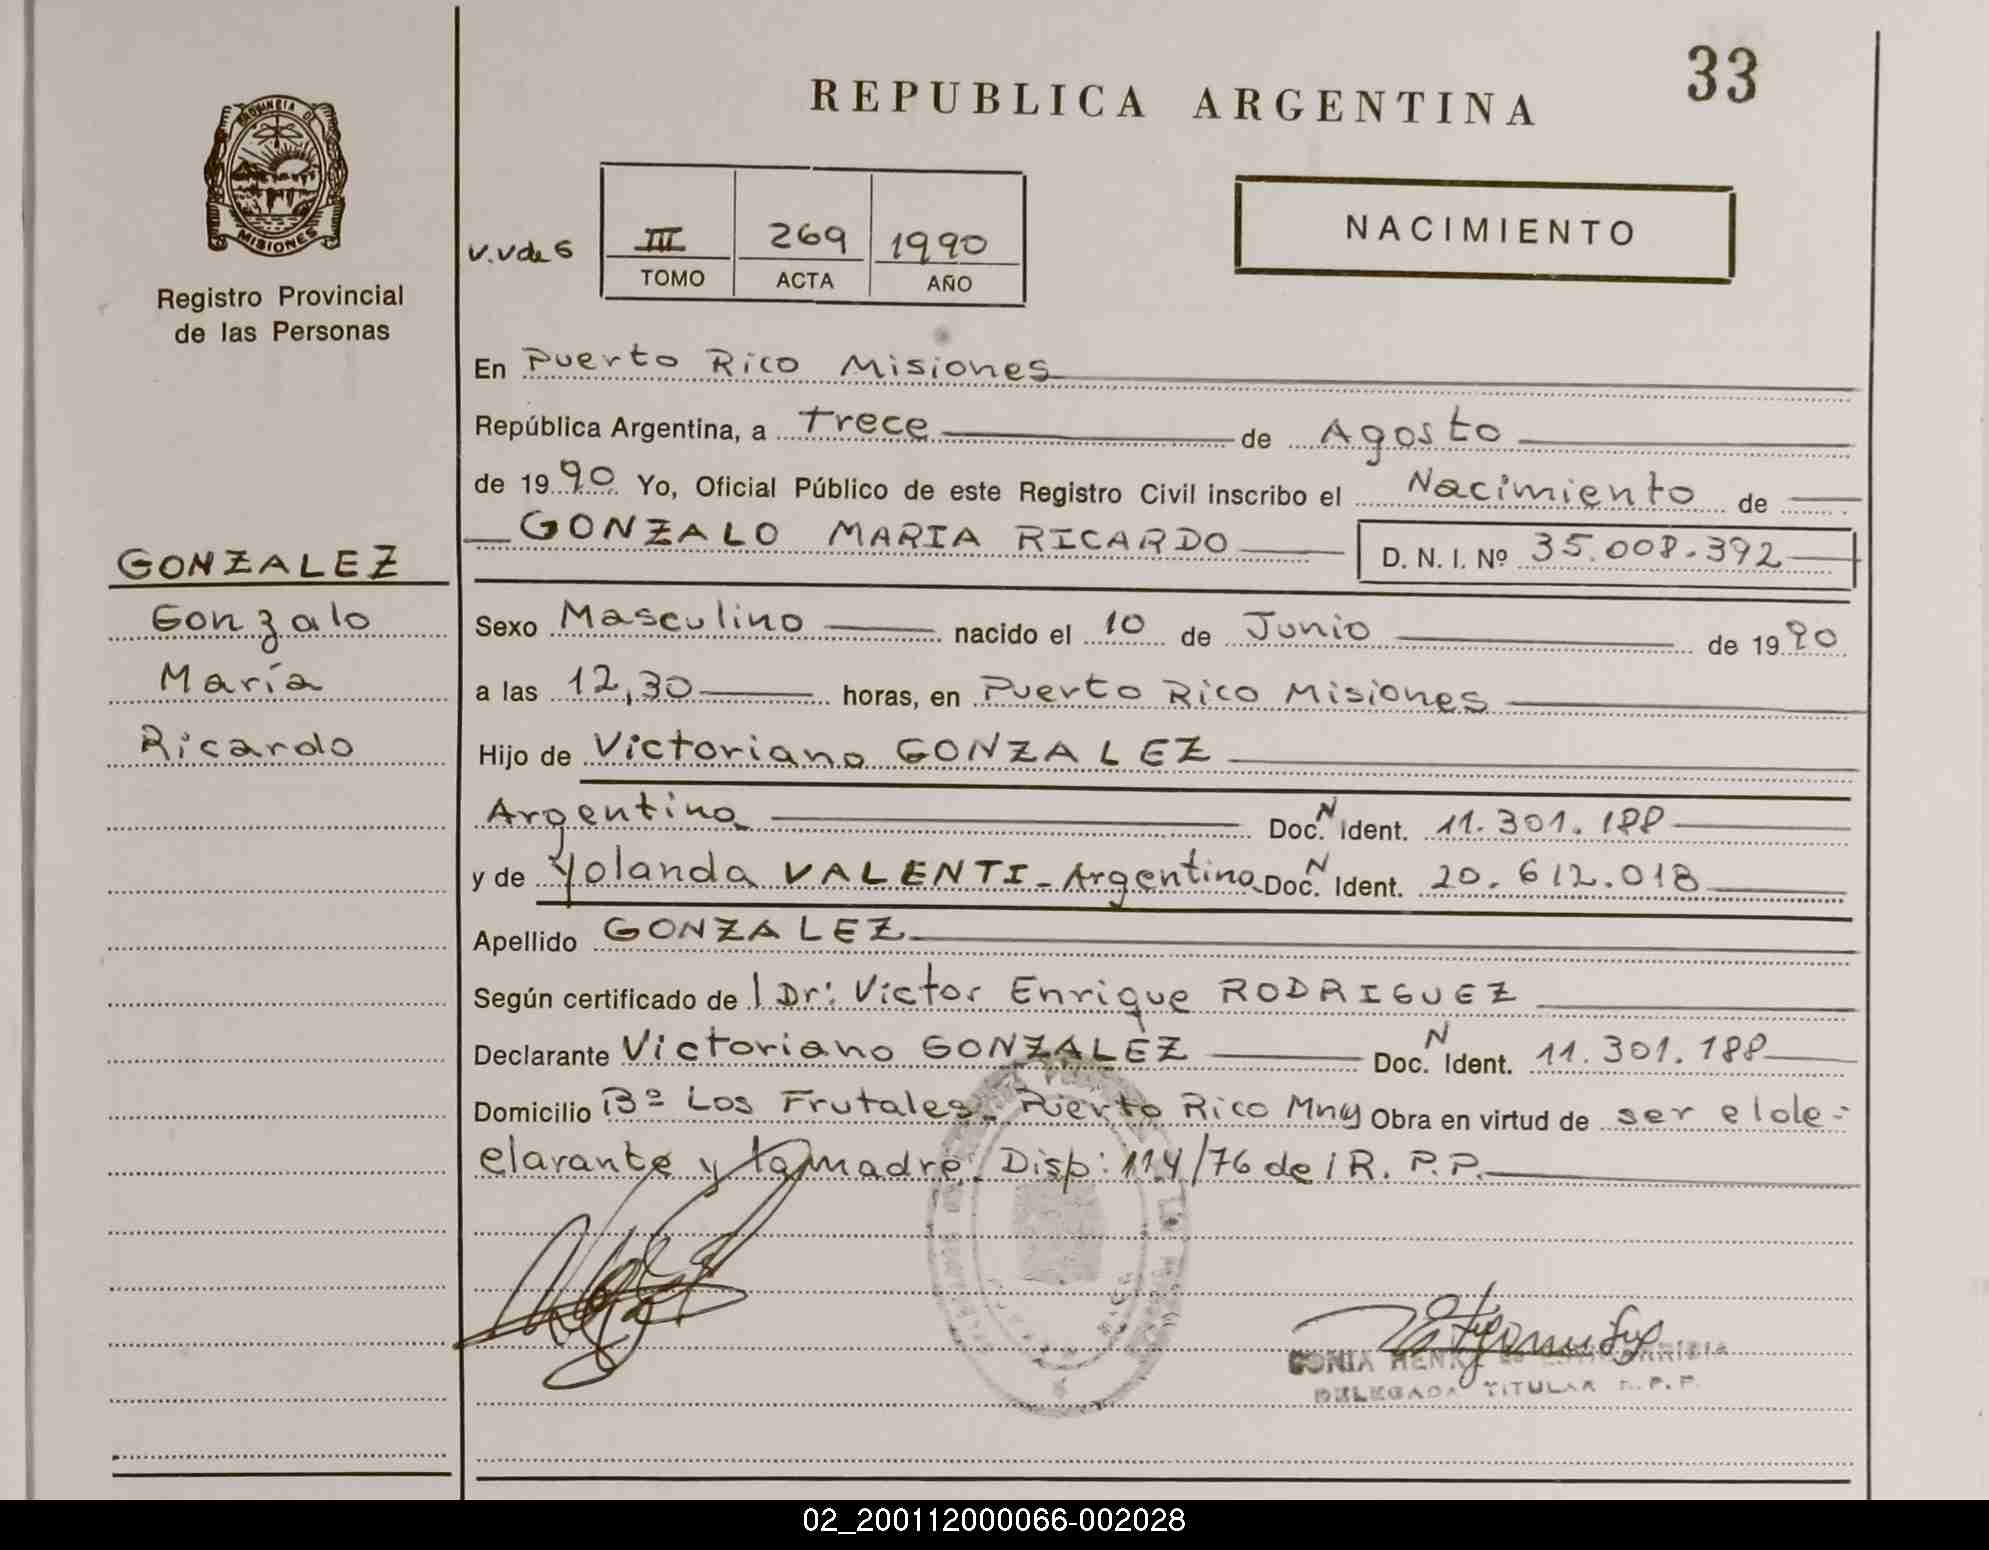 33
REPUBLICA ARGENTINA
PROVINCIA DE
MISIONES
Registro Provincial
de las Personas
V.Vde S
III 269 1990
TOMO ACTA AÑO
NACIMIENTO
En Puerto Rico Misiones
República Argentina, a trece de Agosto
de 1990 Yo, Oficial Público de este Registro Civil inscribo el Nacimiento de
GONZALO MARIA RICARDO D. N. I. Nº 35.008.392
GONZALEZ
Gonzalo
María
Ricardo
Sexo Masculino nacido el 10 de Junio de 1990
a las 12,30 horas, en Puerto Rico Misiones
Hijo de Victoriano GONZALEZ
Argentino Doc. N Ident. 11.301.188
y de Yolanda VALENTI - Argentina Doc. N Ident. 20.612.018
Apellido GONZALEZ
Según certificado de l Dr: Victor Enrique RODRIGUEZ
Declarante Victoriano GONZALEZ Doc. N Ident. 11.301.188
Domicilio Bº Los Frutales - Puerto Rico Mny Obra en virtud de ser el de-
clarante y la madre. Disp: 114/76 del R. P.P.
SONIA HENK
DELEGADA TITULAR R.P.P.
02_200112000066-002028